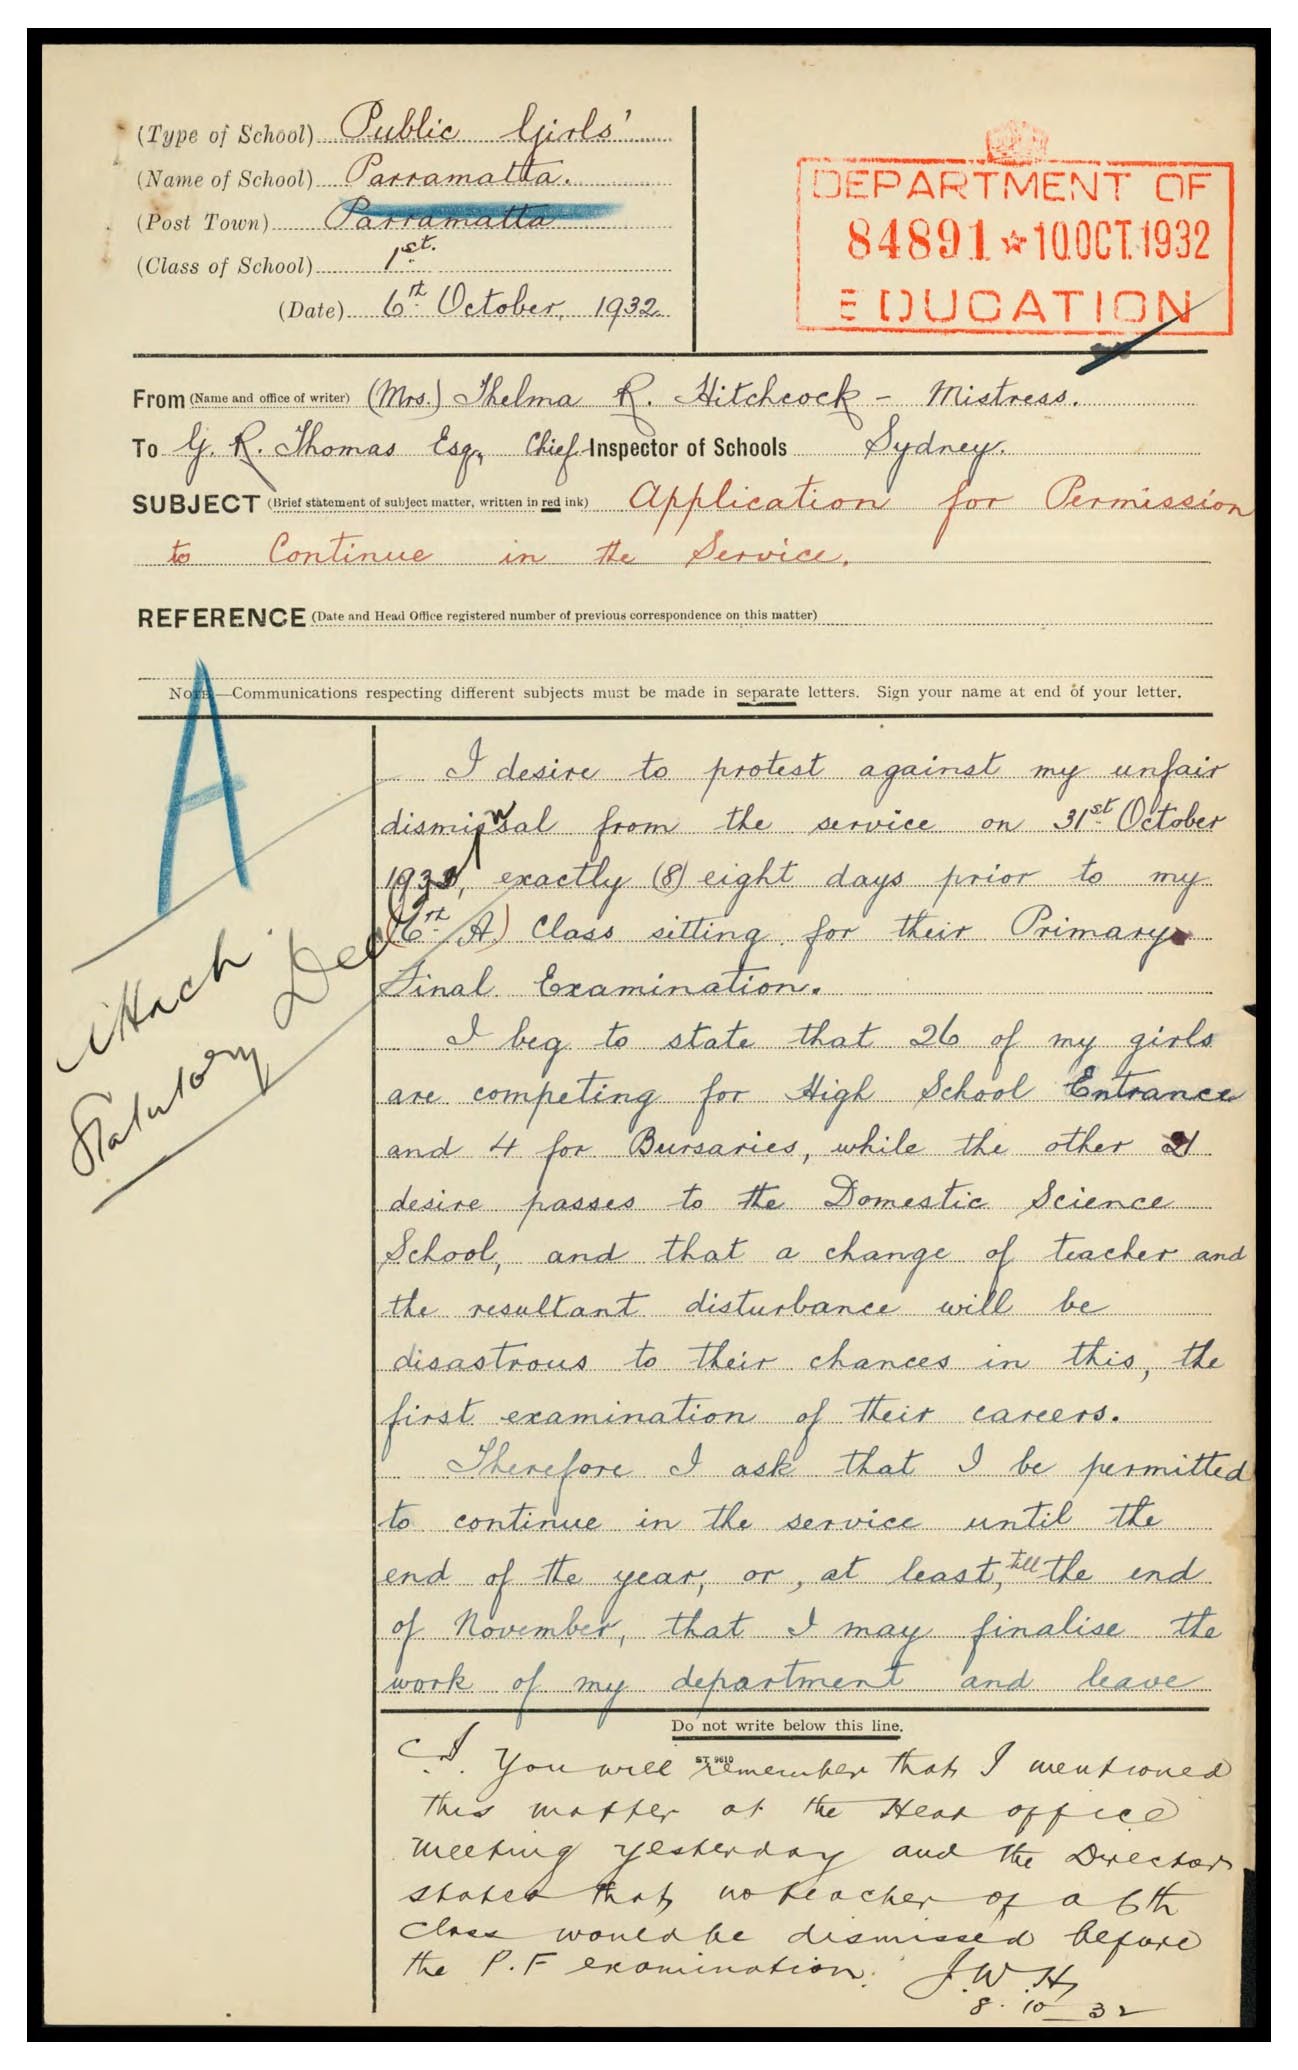 (Type of School) Public Girls'
(Name of School) Parramatta.
(Post Town) Parramatta
(Class of School) 1st.
(Date) 6th October, 1932.
DEPARTMENT OF
84891 ☆ 10.OCT.1932
EDUCATION
From (Name and office of writer) (Mrs.) Thelma R. Hitchcock - Mistress.
To G. R. Thomas Esq., Chief Inspector of Schools Sydney.
SUBJECT (Brief statement of subject matter, written in red ink) Application for Permission
to Continue in the Service.
REFERENCE (Date and Head Office registered number of previous correspondence on this matter)
NOTE.—Communications respecting different subjects must be made in separate letters. Sign your name at end of your letter.
A
Attach
Statutory Dec
I desire to protest against my unfair
dismissal from the service on 31st October
1932, exactly (8) eight days prior to my
(6th A) Class sitting for their Primary
Final Examination.
I beg to state that 26 of my girls
are competing for High School Entrance
and 4 for Bursaries, while the other 21
desire passes to the Domestic Science
School, and that a change of teacher and
the resultant disturbance will be
disastrous to their chances in this, the
first examination of their careers.
Therefore I ask that I be permitted
to continue in the service until the
end of the year, or, at least, till the end
of November, that I may finalise the
work of my department and leave
Do not write below this line.
ST 9610
C.I. You will remember that I mentioned
this matter at the Head office
meeting yesterday and the Director
stated that no teacher of a 6th
Class would be dismissed before
the P.F examination. J.W.H.
8.10.32